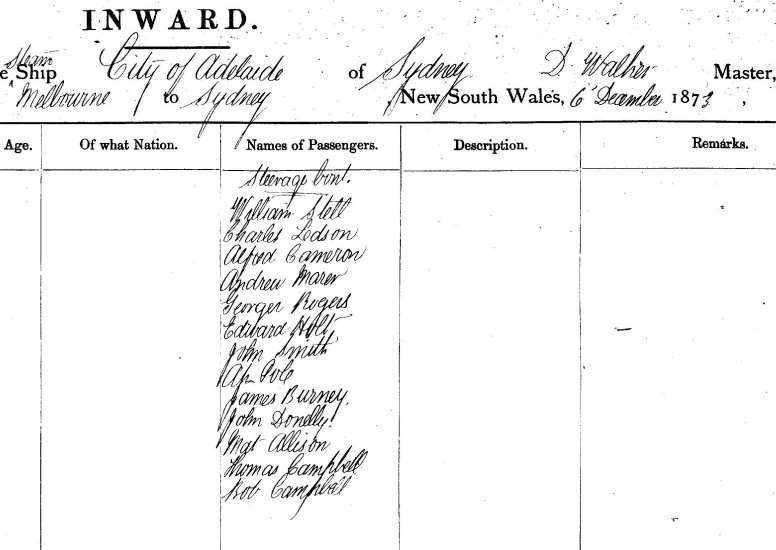 INWARD.
Steam
e Ship City of Adelaide of Sydney D. Walker Master,
Melbourne to Sydney , New South Wales, 6 December 1873 ,
Age. Of what Nation. Names of Passengers. Description. Remarks.
Steerage Cont.
William Stell
Charles Ledson
Alfred Cameron
Andrew
George Rogers
Edward Holt
John Smith
Ah
James Burney.
John Donelly.
Mgt Allison
Thomas Campbell
Rob Campbell